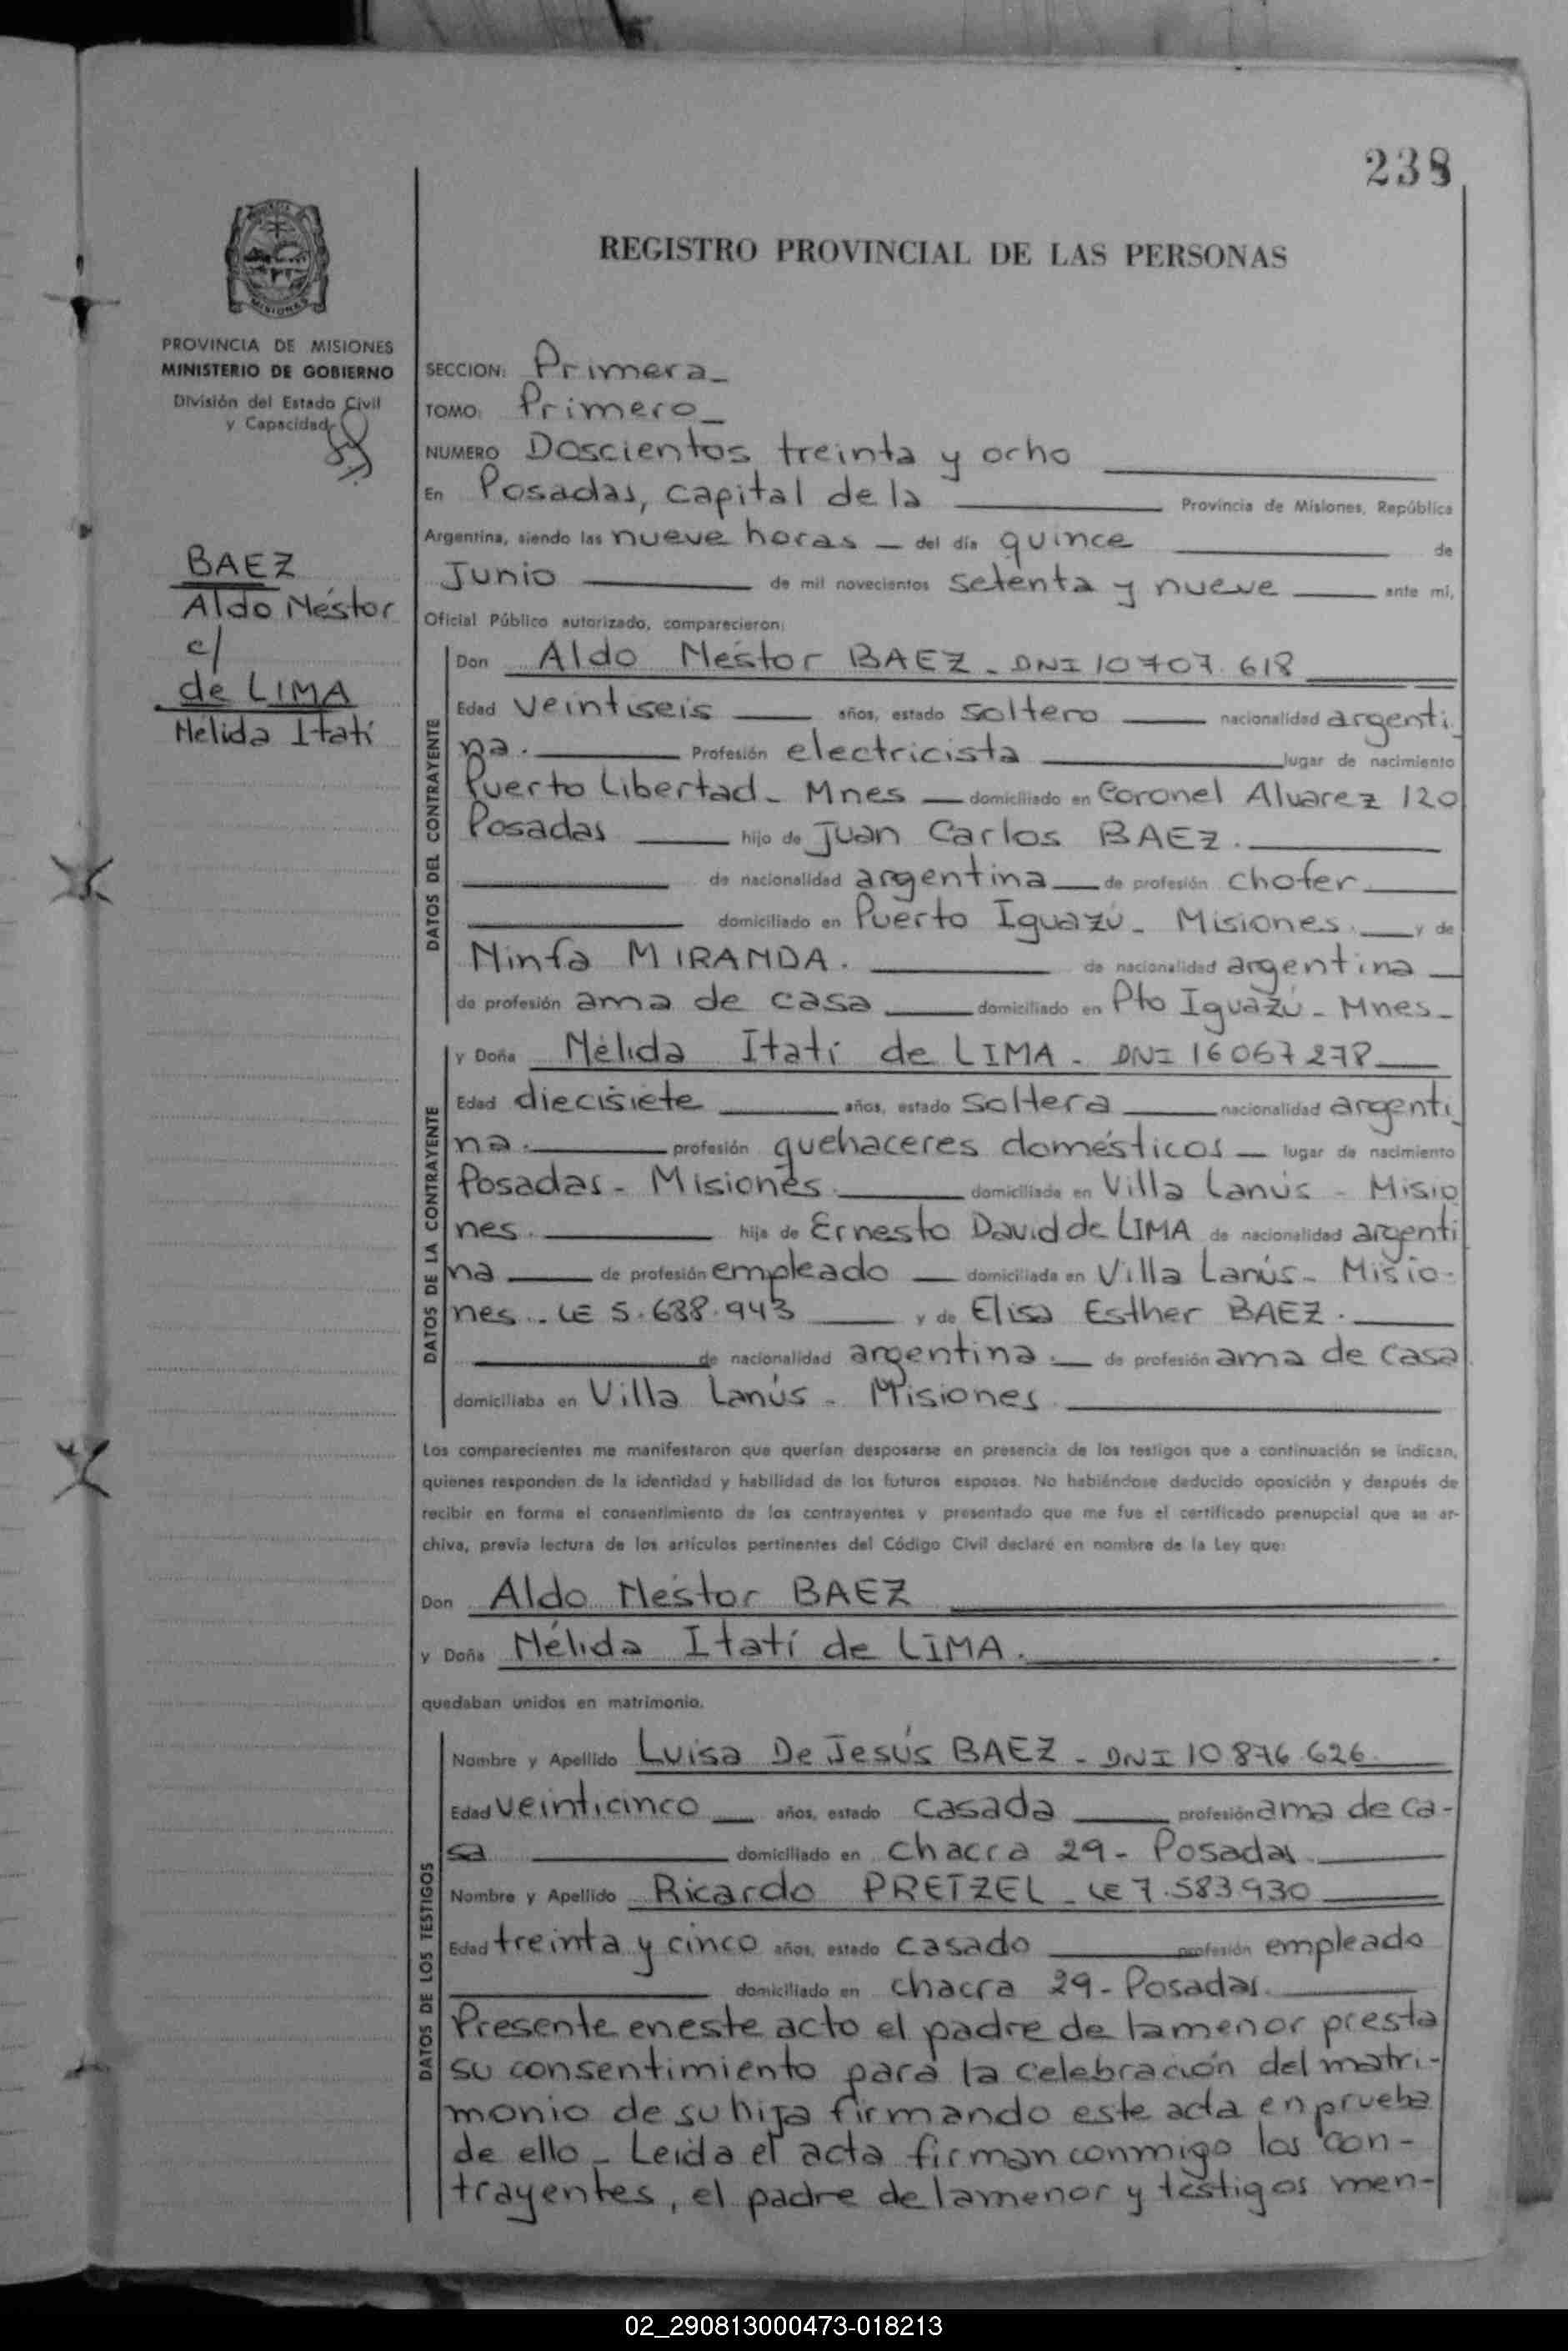 238
REGISTRO PROVINCIAL DE LAS PERSONAS
MISIONES
PROVINCIA DE MISIONES
MINISTERIO DE GOBIERNO
División del Estado Civil
y Capacidad
BAEZ
Aldo Néstor
c/
de LIMA
Nélida Itatí
SECCION: Primera_
TOMO: Primero_
NUMERO Doscientos treinta y ocho
En Posadas, capital de la Provincia de Misiones, República
Argentina, siendo las nueve horas _ del día quince de
Junio de mil novecientos setenta y nueve ante mí,
Oficial Público autorizado, comparecieron:
DATOS DEL CONTRAYENTE
Don Aldo Néstor BAEZ - DNI 10707.618
Edad veintiseis años, estado soltero nacionalidad argenti_
na. Profesión electricista lugar de nacimiento
Puerto Libertad - Mnes domiciliado en Coronel Alvarez 120
Posadas hijo de Juan Carlos BAEZ.
de nacionalidad argentina de profesión chofer
domiciliado en Puerto Iguazú - Misiones. y de
Ninfa MIRANDA. de nacionalidad argentina
de profesión ama de casa domiciliado en Pto Iguazú - Mnes -
DATOS DE LA CONTRAYENTE
y Doña Nélida Itatí de LIMA - DNI 16067278
Edad diecisiete años, estado soltera nacionalidad argenti_
na. profesión quehaceres domésticos lugar de nacimiento
Posadas - Misiones. domiciliada en Villa Lanús - Misio
nes. hija de Ernesto David de LIMA de nacionalidad argenti
na de profesión empleado domiciliada en Villa Lanús - Misio-
nes - LE 5.688.943 y de Elisa Esther BAEZ.
de nacionalidad argentina. de profesión ama de casa.
domiciliaba en Villa Lanús - Misiones
Los comparecientes me manifestaron que querían desposarse en presencia de los testigos que a continuación se indican,
quienes responden de la identidad y habilidad de los futuros esposos. No habiéndose deducido oposición y después de
recibir en forma el consentimiento de los contrayentes y presentado que me fue el certificado prenupcial que se ar-
chiva, previa lectura de los artículos pertinentes del Código Civil declaré en nombre de la Ley que:
Don Aldo Néstor BAEZ
y Doña Nélida Itatí de LIMA.
quedaban unidos en matrimonio.
DATOS DE LOS TESTIGOS
Nombre y Apellido Luisa De Jesús BAEZ - DNI 10876.626
Edad veinticinco años, estado casada profesión ama de ca-
sa domiciliado en chacra 29 - Posadas.
Nombre y Apellido Ricardo PRETZEL - LE 7.583930
Edad treinta y cinco años, estado casado profesión empleado
domiciliado en chacra 29 - Posadas.
Presente en este acto el padre de la menor presta
su consentimiento para la celebración del matri-
monio de su hija firmando este acta en prueba
de ello - Leída el acta firman conmigo los con-
trayentes, el padre de la menor y testigos men-
02_290813000473-018213